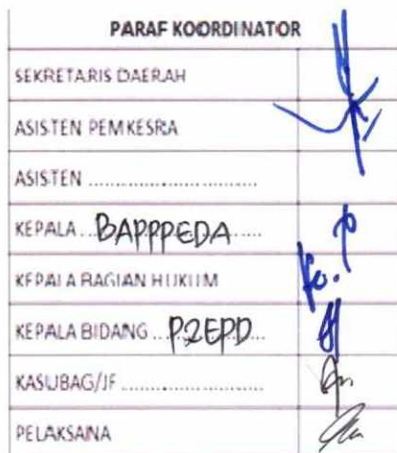 PARAF KOORDINATOR
SEKRETARIS DAERAH
ASISTEN PEMKESRA
ASISTEN ..............................
KEPALA ... BAPPPEDA ......
KEPALA BAGIAN HUKUM
KEPALA BIDANG ... P2EPD ...
KASUBAG/JF .....................
PELAKSANA